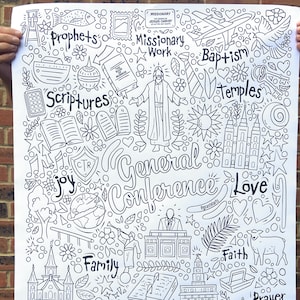 Prophets
Missionary
Work
Baptism
Scriptures
Temples
General
Conference
Joy
Love
Family
Faith
Prayer